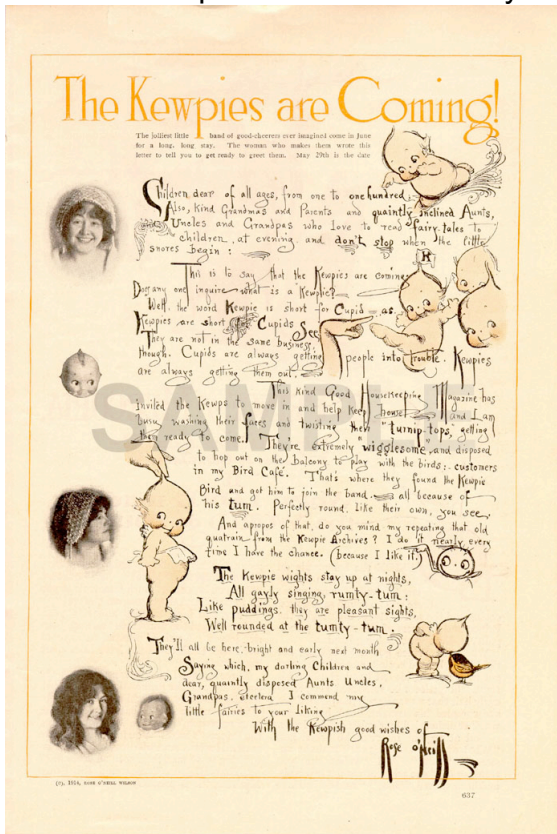 The Kewpies are Coming!
The jolliest little band of good-cheerers ever imagined come in June
for a long, long stay. The woman who makes them wrote this
letter to tell you to get ready to greet them. May 29th is the date
Children dear of all ages, from one to one hundred.
Also, kind Grandmas and Parents and quaintly inclined Aunts,
Uncles and Grandpas who love to read fairy tales to
children, at evening and don't stop when the little
snores begin :
K
This is to say that the Kewpies are coming
Does any one inquire what is a "Kewpie"?
Well, the word Kewpie is short for Cupid — as
Kewpies are short Cupids. See
They are not in the same business,
though. Cupids are always getting people into trouble. Kewpies
are always getting them out.
This kind Good Housekeeping Magazine has
invited the Kewps to move in and help keep house and I am
busy washing their faces and twisting their "turnip-tops," getting
them ready to come. They're extremely "wigglesome" and disposed
to hop out on the balcony to play with the birds : customers
in my Bird Café. That's where they found the Kewpie
Bird and got him to join the band — all because of
his tum. Perfectly round, like their own, you see.
And apropos of that, do you mind my repeating that old
quatrain from the Kewpie Archives? I do it nearly every
time I have the chance. (because I like it.)
The Kewpie wights stay up at nights,
All gayly singing, rumty-tum :
Like puddings, they are pleasant sights,
Well rounded at the tumty-tum.
They'll all be here, bright and early next month
Saying which, my darling Children and
dear, quaintly disposed Aunts, Uncles,
Grandpas, etcetera I commend my
little fairies to your liking
With the Kewpish good wishes of
Rose O'Neill
SAMPLE
(c), 1914, ROSE O'NEILL WILSON
637